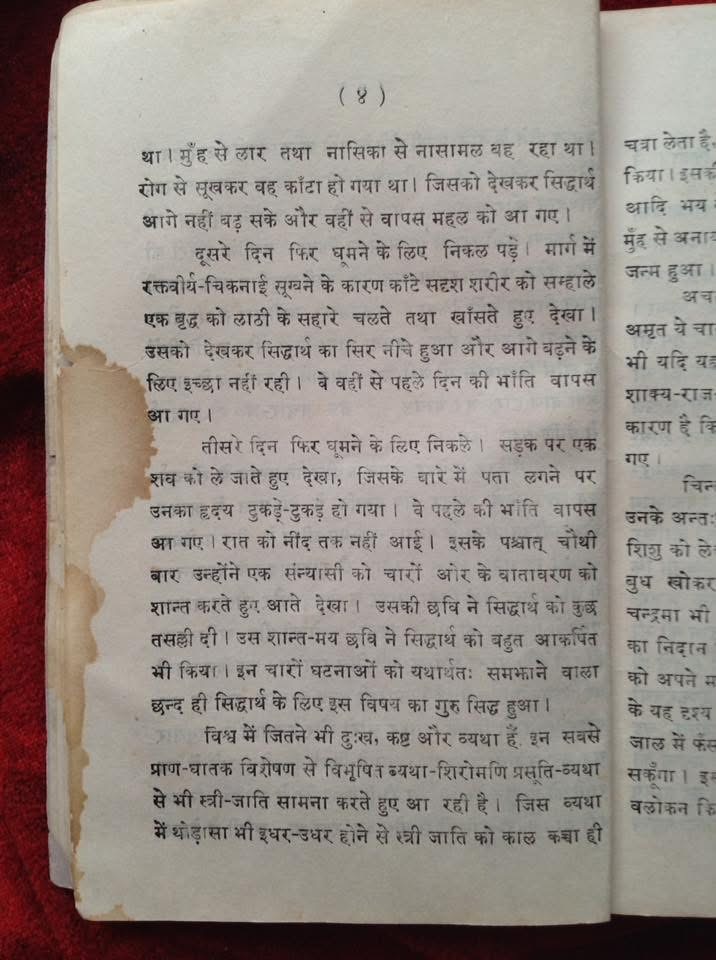 ( ४ )
था । मुँह से लार तथा नासिका से नासामल बह रहा था ।
रोग से सूखकर वह काँटा हो गया था । जिसको देखकर सिद्धार्थ
आगे नहीं बढ़ सके और वहीं से वापस महल को आ गए ।
दूसरे दिन फिर घूमने के लिए निकल पड़े । मार्ग में
रक्तवीर्य-चिकनाई सूखने के कारण काँटे सदृश शरीर को सम्हाले
एक बृद्ध को लाठी के सहारे चलते तथा खाँसते हुए देखा ।
उसको देखकर सिद्धार्थ का सिर नीचे हुआ और आगे बढ़ने के
लिए इच्छा नहीं रही । वे वहीं से पहले दिन की भाँति वापस
आ गए ।
तीसरे दिन फिर घूमने के लिए निकले । सड़क पर एक
शव को ले जाते हुए देखा, जिसके बारे में पता लगने पर
उनका हृदय टुकड़े-टुकड़े हो गया । वे पहले की भाँति वापस
आ गए । रात को नींद तक नहीं आई । इसके पश्चात् चौथी
बार उन्होंने एक संन्यासी को चारों ओर के वातावरण को
शान्त करते हुए आते देखा । उसकी छवि ने सिद्धार्थ को कुछ
तसल्ली दी । उस शान्त-मय छवि ने सिद्धार्थ को बहुत आकर्षित
भी किया । इन चारों घटनाओं को यथार्थतः समझाने वाला
छन्द ही सिद्धार्थ के लिए इस विषय का गुरु सिद्ध हुआ ।
विश्व में जितने भी दुःख, कष्ट और व्यथा हैं, इन सबसे
प्राण-घातक विशेषण से विभूषित व्यथा-शिरोमणि प्रसूति-व्यथा
से भी स्त्री-जाति सामना करते हुए आ रही है । जिस व्यथा
में थोड़ासा भी इधर-उधर होने से स्त्री जाति को काल कच्चा ही
चबा लेता है,
किया । इसकी
आदि भय
मुँह से
जन्म हुआ ।
अमृत ये
भी यदि यह
शाक्य-राज-
कारण है कि
गए ।
उनके
शिशु को
बुध खोकर
चन्द्रमा भी
का निदान
को अपने
के यह दृश्य
जाल में
सकूँगा ।